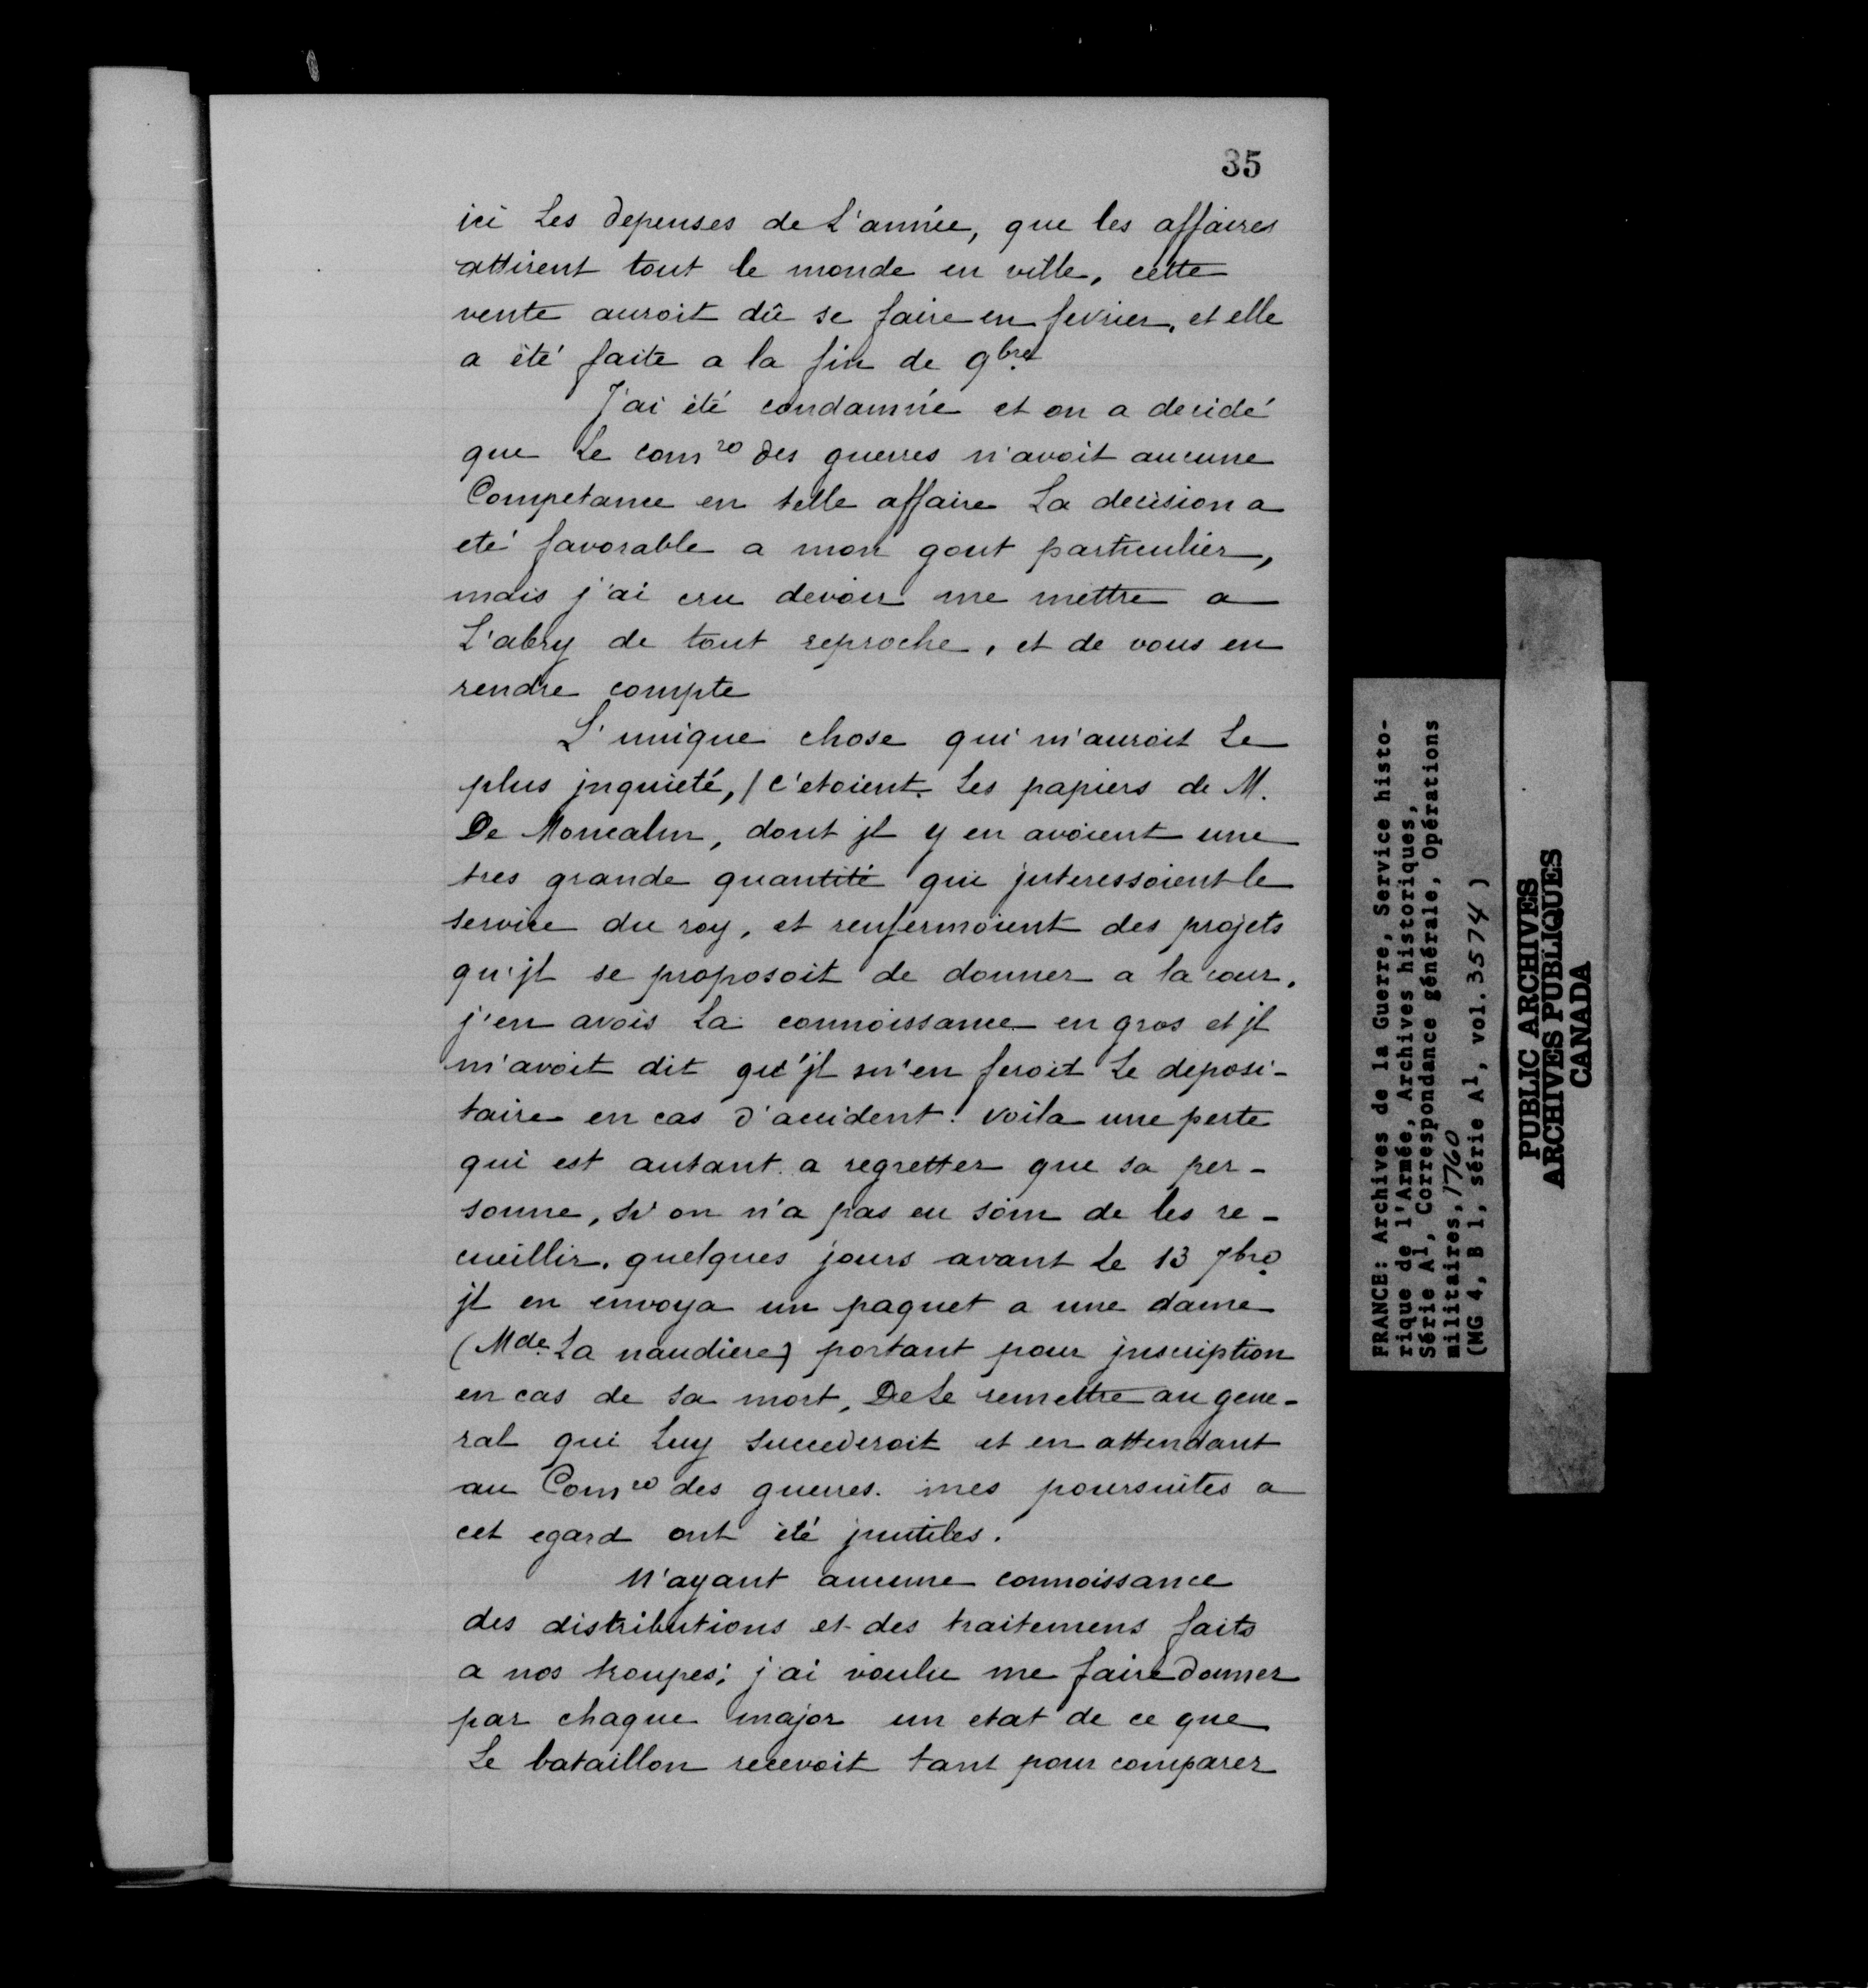 35
ici Les depenses de L'année, que les affaires
attirent tout le monde en ville, cette
vente auroit dû se faire en fevrier, et elle
a été faite a la fin de 9bre.
J'ai été condamnée et on a decidé
que Le comre des guerres n'avoit aucune
Competance en telle affaire La decision a
eté favorable a mon gout particulier,
mais j'ai cru devoir me mettre a
L'abry de tout reproche, et de vous en
rendre compte
L'unique chose qui m'auroit Le
plus jnquieté, / c'etoient Les papiers de M.
De Moncalm, dont jl y en avoient une
tres grande quantité qui jnteressoient le
service du roy, et renfermoient des projets
qu'jl se proposoit de donner a la cour.
j'en avois La connoissance en gros et jl
m'avoit dit qu'jl m'en feroit Le deposi-
taire en cas d'accident. voila une perte
qui est autant a regretter que sa per-
sonne, si on n'a pas eu soin de les re-
cueillir. quelques jours avant le 13 7bre
jl en envoya un paquet a une dame
(Mde. La naudiere) portant pour jnscription
en cas de sa mort, De Le remettre au gene-
ral qui Luy succederoit et en attendant
au Comre des guerres. mes poursuites a
cet egard ont été jnutiles.
N'ayant aucune connoissance
des distributions et des traitemens faits
a nos troupes; j'ai voulu me faire donner
par chaque major un etat de ce que
Le bataillon recevoit tant pour comparer
FRANCE: Archives de la Guerre, Service histo-
rique de l'Armée, Archives historiques,
Série A1, Correspondance générale, Opérations
militaires, 1760
(MG 4, B 1, série A1, vol. 3574)
PUBLIC ARCHIVES
ARCHIVES PUBLIQUES
CANADA